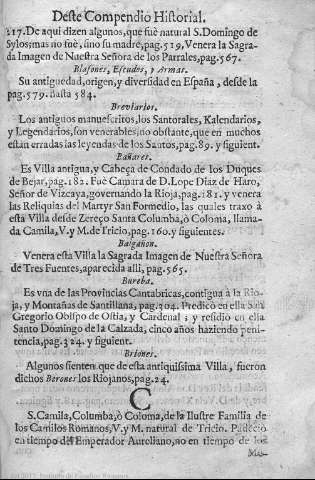 Deste Compendio Historial.
217. De aqui dizen algunos, que fuè natural S. Domingo de
Sylos; mas no fuè, sino su madre, pag. 519, Venera la Sagra-
da Imagen de Nuestra Señora de los Parrales, pag. 567.
Blasones, Escudos, y Armas.
Su antiguedad, origen, y diversidad en España, desde la
pag. 579. hasta 584.
Breviarios.
Los antiguos manuescritos, los Santorales, Kalendarios,
y Legendarios, son venerables, no obstante, que en muchos
estan erradas las leyendas de los Santos, pag. 89. y siguient.
Bañares.
Es Villa antigua, y Cabeça de Condado de los Duques
de Bejar, pag. 182. Fuè Camara de D. Lope Diaz de Haro,
Señor de Vizcaya, governando la Rioja, pag. 181. y venera
las Reliquias del Martyr San Formedio, las quales traxo à
esta Villa desde Zereço Santa Columba, ò Coloma, llama-
da Camila, V. y M. de Tricio, pag. 160. y siguientes.
Balgañon.
Venera esta Villa la Sagrada Imagen de Nuestra Señora
de Tres Fuentes, aparecida alli, pag. 565.
Bureba.
Es vna de las Provincias Cantabricas, contigua à la Rio-
ja, y Montañas de Santillana, pag. 304. Predicò en ella San
Gregorio Obispo de Ostia, y Cardenal; y residiò en ella
Santo Domingo de la Calzada, cinco años haziendo peni-
tencia, pag. 324. y siguient.
Briones.
Algunos sienten que de esta antiquissima Villa, fueron
dichos Berones los Riojanos, pag. 24.
C
S. Camila, Columba, ò Coloma, de la Ilustre Familia de
los Camilos Romanos, V. y M. natural de Tricio. Padeciò
en tiempo del Emperador Aureliano, no en tiempo de los